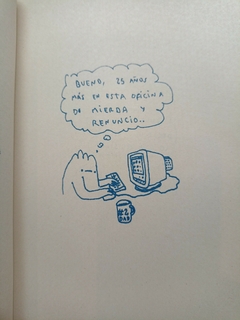 BUENO, 25 AÑOS
MÁS EN ESTA OFICINA
DE MIERDA Y
RENUNCIO..